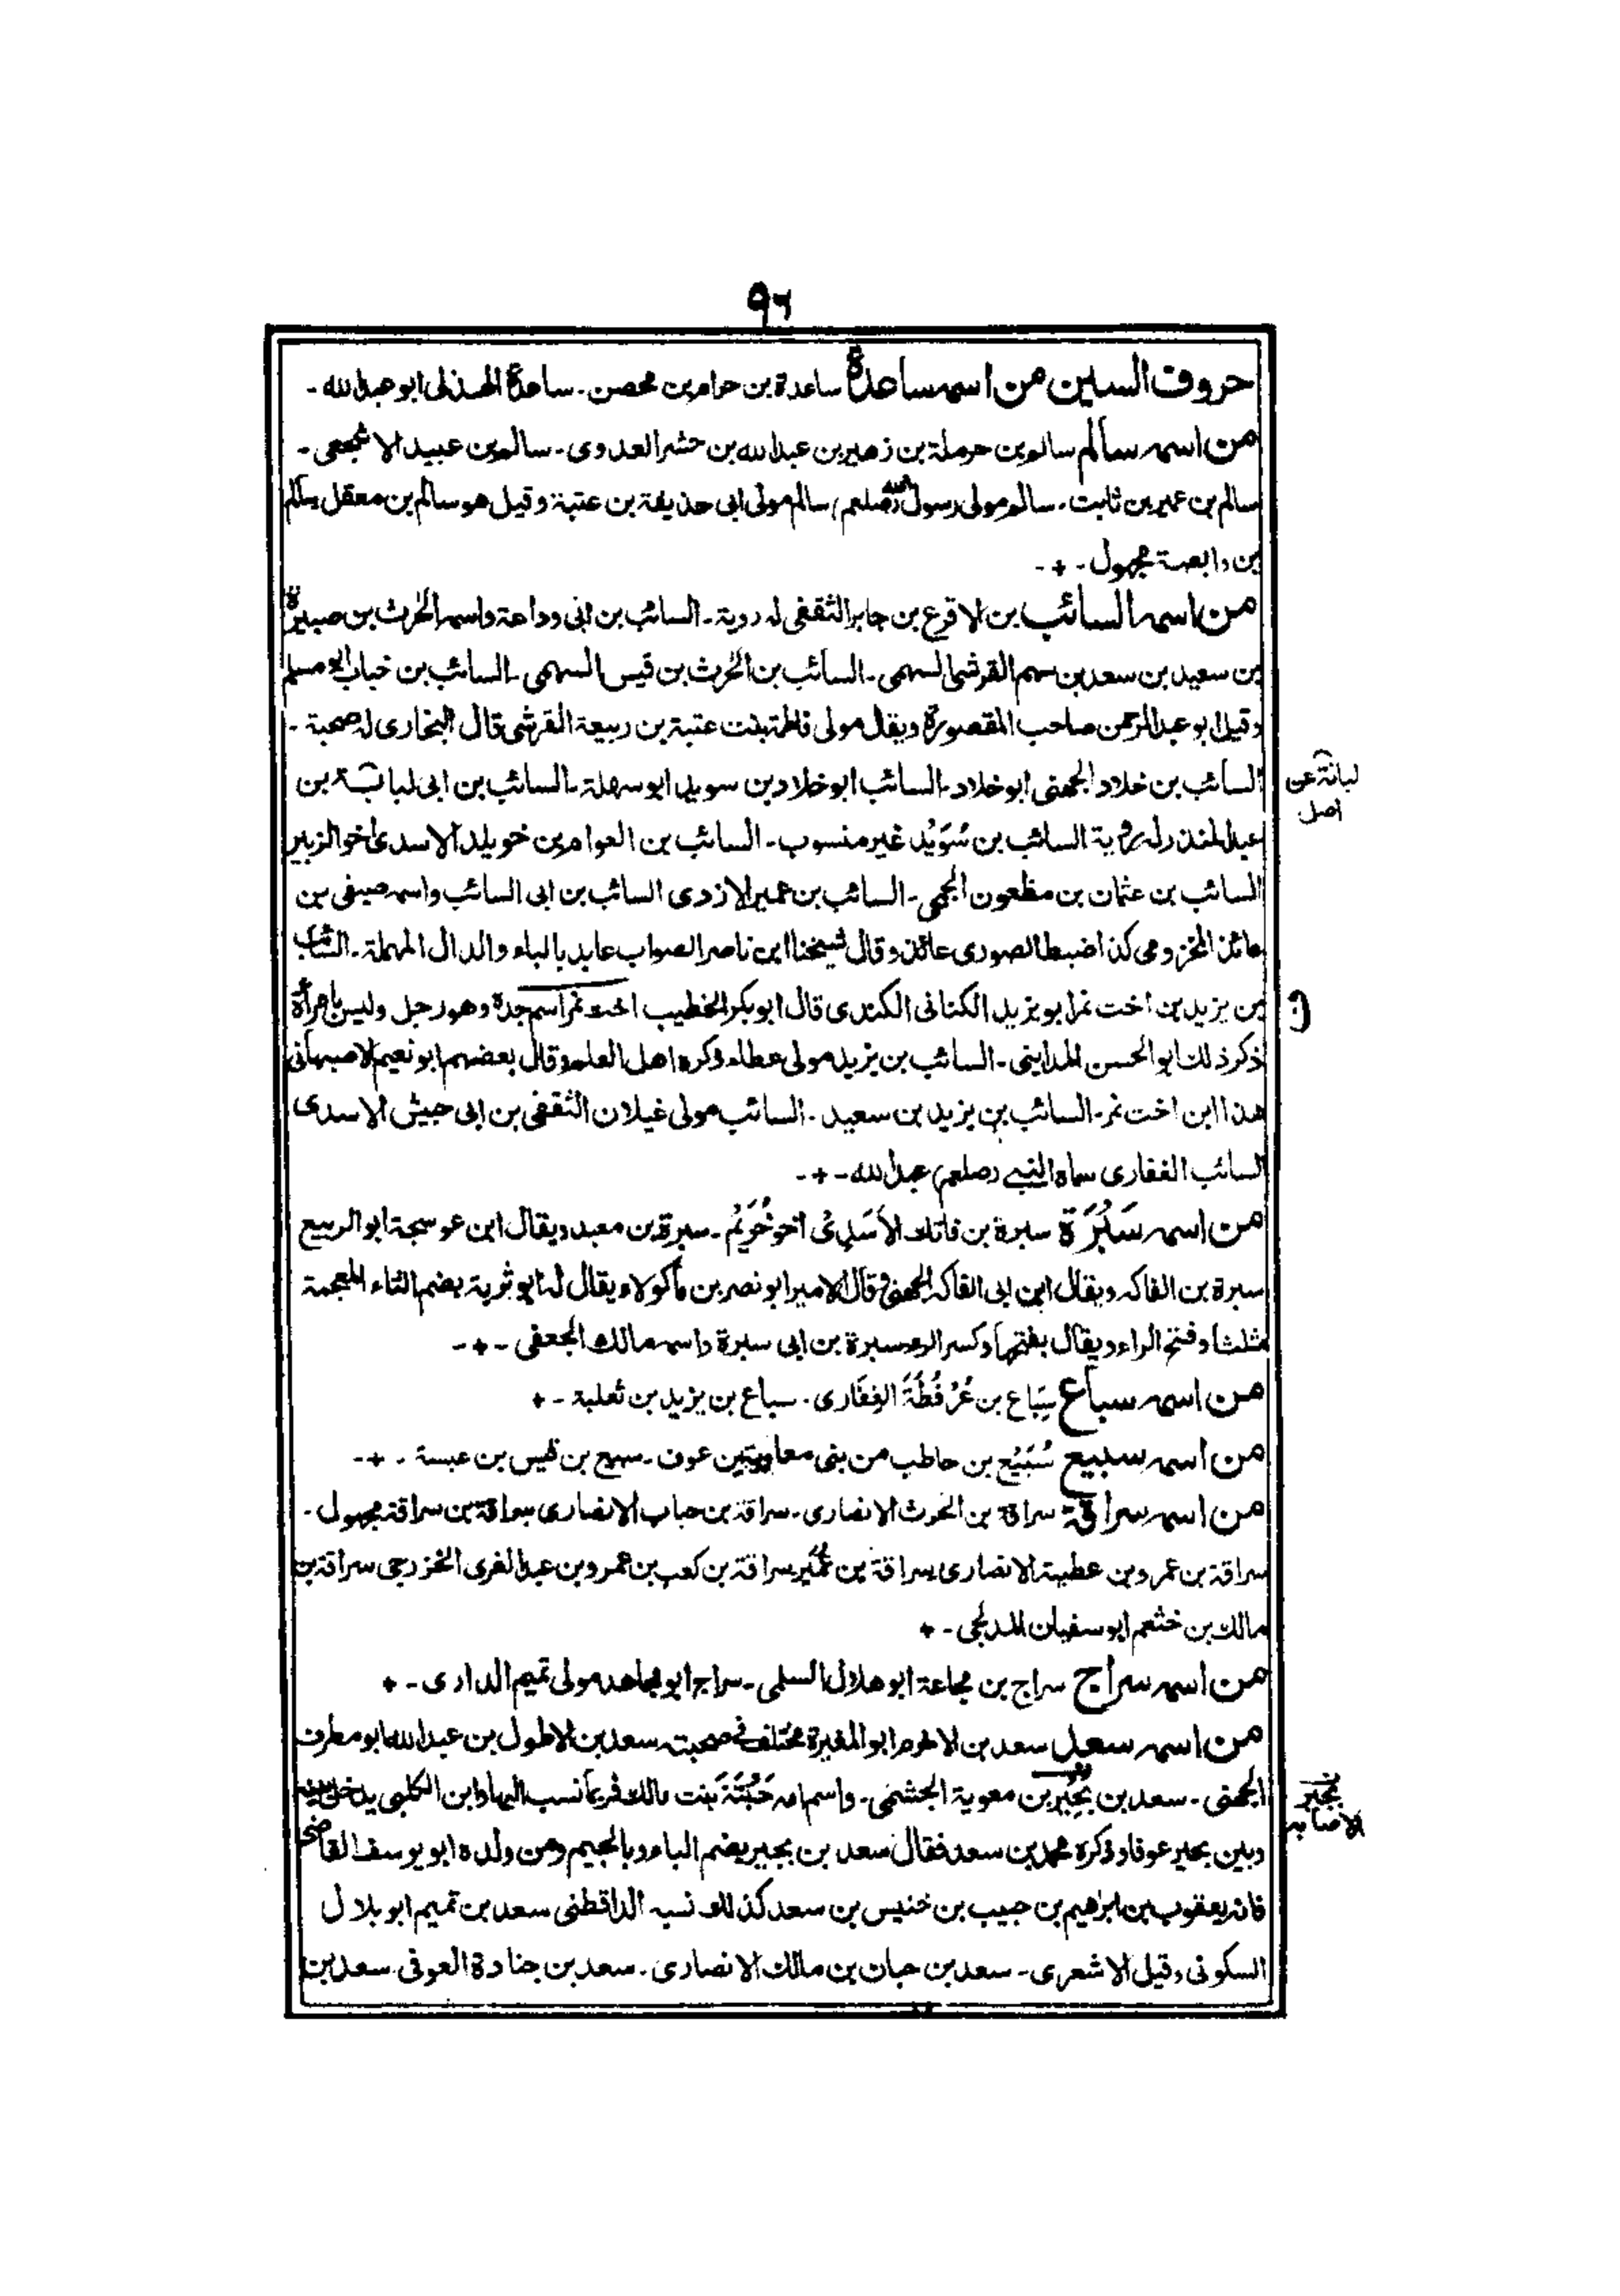 ٩٢
حروف السين من اسمه ساعدة ساعدة بن حرام بن محصن - ساعدة الهذلى ابو عبد الله -
من اسمه سالم سالم بن حرملة بن زهير بن عبد الله بن حشر العدوى - سالم بن عبيد الاشجعى -
سالم بن عمير بن ثابت - سالم مولى رسول الله (صلعم) سالم مولى ابى حذيفة بن عتبة وقيل هو سالم بن معقل سالم
بن وابصة مجهول - + -
من اسمه السائب بن الاقرع بن جابر الثقفى له روية - السائب بن ابى وداعة واسمه الحٰرث بن صبيرة
بن سعيد بن سعد بن سهم القرشى السهمى - السائب بن الحٰرث بن قيس السهمى - السائب بن خباب ابو مسلم
وقيل ابو عبد الرحمن صاحب المقصورة ويقال مولى فاطمة بنت عتبة بن ربيعة القرشى قال البخارى له صحبة -
السائب بن خلاد الجهنى ابو خلاد - السائب ابو خلاد بن سويد ابو سهلة - السائب بن ابى لبابة بن
لبانة عن
اصل
عبد المنذر له رؤية السائب بن سُوَيْد غير منسوب - السائب بن العوام بن خويلد الاسدى اخو الزبير
السائب بن عثمان بن مظعون الجمحى - السائب بن عمير الازدى السائب بن ابى السائب واسمه صيفى بن
عائذ المخزومى كذا ضبط الصورى عائذ وقال شيخنا ابن ناصر الصواب عابد بالباء والدال المهملة - السائب
بن يزيد بن اخت نمر ابو يزيد الكنانى الكندى قال ابو بكر الخطيب اخت نمر اسم جدة وهو رجل وليس بامرأة
ذكر ذلك ابو الحسن المداينى - السائب بن يزيد مولى عطاء ذكره اهل العلم وقال بعضهم ابو نعيم الاصبهانى
هذا ابن اخت نمر - السائب بن يزيد بن سعيد - السائب مولى غيلان الثقفى بن ابى حبيش الاسدى
السائب الغفارى سماه النبي (صلعم) عبد الله - + -
من اسمه سَبُرَة سبرة بن فاتك الأَسَدِىُّ اخو خُرَيْم - سبرة بن معبد ويقال ابن عوسجة ابو الربيع
سبرة بن الفاكه ويقال ابن ابى الفاكه الجهنى وقال الامير ابو نصر بن ماكولاء يقال له ابو ثرية بضم الثاء المعجمة
مثلثا وفتح الراء ويقال بفتحها وكسر الراء سبرة بن ابى سبرة واسمه مالك الجعفى - + -
من اسمه سباع سِبَاع بن عُرْفُطَةَ الغِفَارى - سباع بن يزيد بن ثعلبة - +
من اسمه سبيع سُبَيْع بن حاطب من بنى معاوية بن عوف - سبيع بن قيس بن عبسة - + -
من اسمه سراقة سراقة بن الحرث الانصارى - سراقة بن حباب الانصارى سراقة بن سراقة مجهول -
سراقة بن عمرو بن عطية الانصارى سراقة بن عُمَير سراقة بن كعب بن عمرو بن عبد الغرى الخزرجى سراقة بن
مالك بن خثعم ابو سفيان المدلجى - +
من اسمه سراج سراج بن مجاعة ابو هلال السلمى - سراج ابو مجاهد مولى تميم الدارى - +
من اسمه سعد سعد بن الاخرم ابو المغيرة مختلف فى صحبته سعد بن الاطول بن عبد الله ابو مطرف
الجهنى - سعد بن بُجَيْر بن معوية الجشمى - واسم امه حَبْتَةَ بنت مالك فربما نسب اليها وابن الكلبى يدخل بينه
بجير
الاصابه
وبين بجير عوفا وذكره محمد بن سعد فقال سعد بن بجير بضم الباء وبالجيم ومن ولده ابو يوسف القاضى
فانه يعقوب بن ابرٰهيم بن حبيب بن خنيس بن سعد كذلك نسبه الداقطنى سعد بن تميم ابو بلال
السكونى وقيل الاشعرى - سعد بن حبان بن مالك الانصارى - سعد بن جنادة العوفى سعد بن